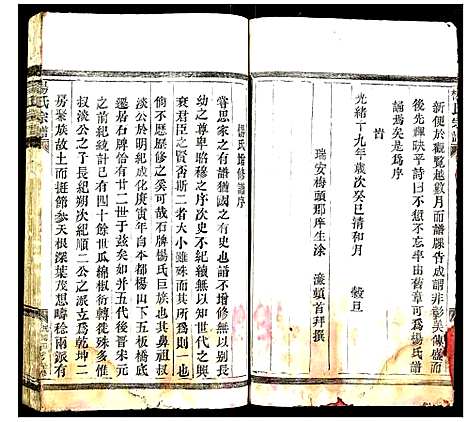 新便於觀覽越數月而譜牒告成謂非彰美傳盛而
後先輝映乎詩曰不愆不忘率由舊章可為楊氏譜
誦焉矣是為序
旹
光緒十九年歲次癸巳清和月 穀旦
瑞安梅頭那庠生涂 濂頓首拜撰
楊氏增修譜序
嘗思家之有譜猶國之有史也譜不增修無以別長
幼之尊卑昭穆之序次史不紀續無以知世代之興
衰君臣之賢否斯二者大小雖殊而其所為則一也
倘不歷歷修之奚可哉石牌楊氏其鼻祖叔
淡公於明紀成化庚寅年自本都楊山下五板橋底
遷居石牌何廿二世于茲矣如并五代後晉宋元
之前紀統計已有四十餘世瓜綿椒衍轉徙殊多惟
叔淡公之子長紀朔次紀順二公之派立為乾坤二
房聚族故土而挺節參天根深葉茂思疇稔兩派有
楊氏宗譜